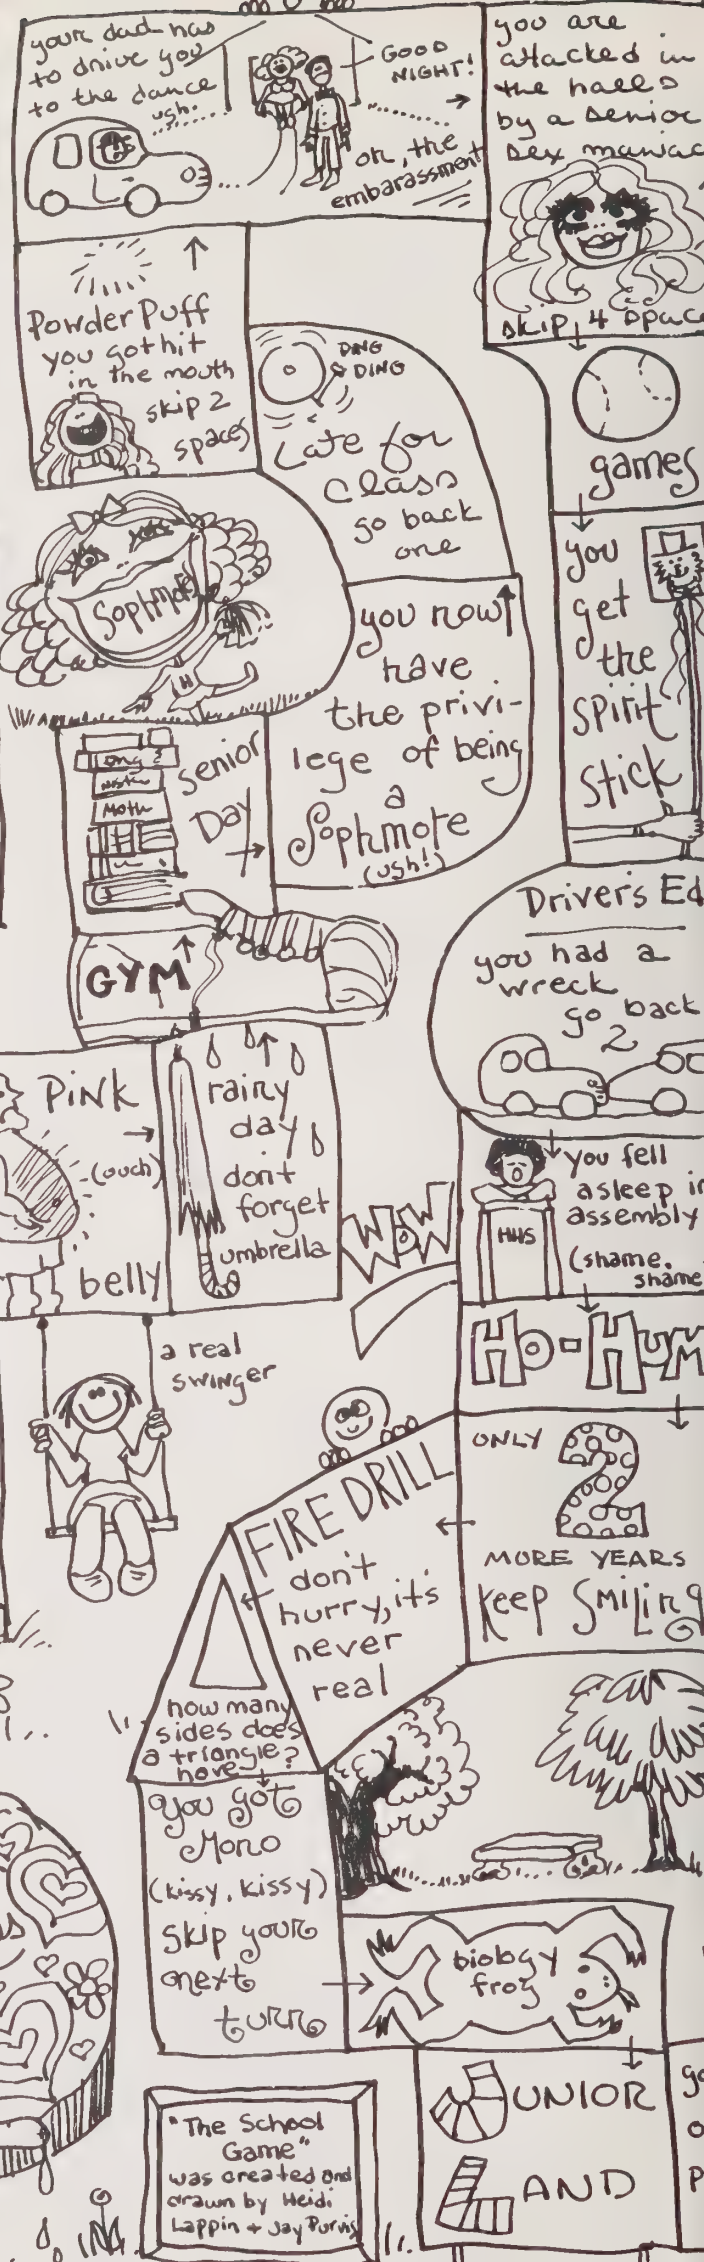 your dad has
to drive you
to the dance
ugh.
GOOD
NIGHT!
oh, the
embarassment
you are
attacked in
the halls
by a senior
sex maniac
skip 4
Powder Puff
you got hit
in the mouth
skip 2
spaces
DING
DING
Late for
class
go back
one
games
Sophmore
you now
have
the privi-
lege of being
a
Sophmore
(ugh!)
you
get
the
spirit
stick
Eng
Math
senior
Day
GYM
Driver's Ed
you had a
wreck
go back
2
PiNK
(ouch)
belly
rainy
day
don't
forget
umbrella
WOW
HHS
you fell
asleep in
assembly
(shame,
shame
HO-HUM
a real
SWINGER
ONLY
2
MORE YEARS
Keep Smiling
FIRE DRILL
don't
hurry, it's
never
real
how many
sides does
a triangle
have?
you got
Mono
(kissy, kissy)
skip your
next
turn
biology
frog
JUNIOR
LAND
"The School
Game"
was created and
drawn by Heidi
Lappin + Jay Purvis